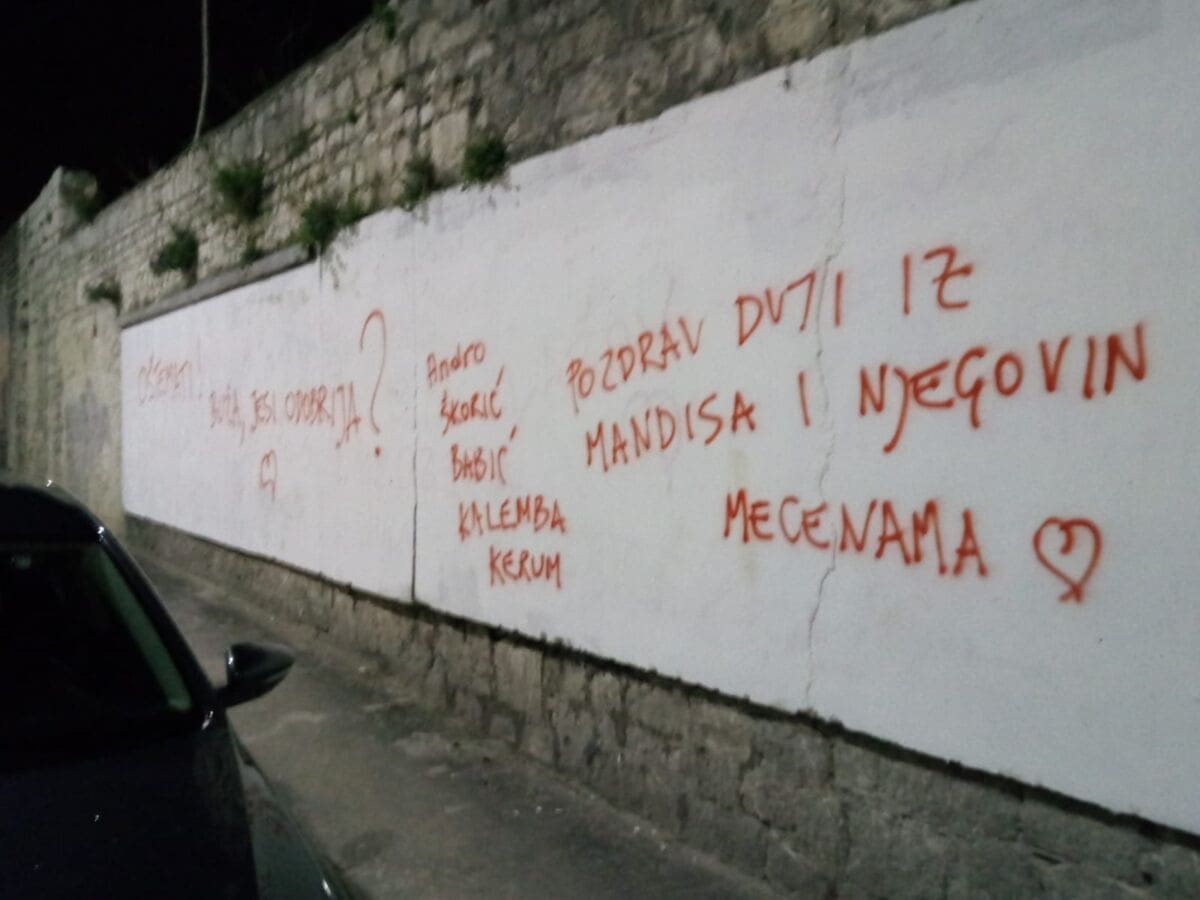 BOŽA, JESI ODOBRIJA?
Andro
ŠKORIĆ
BABIĆ
KALEMBA
KERUM
POZDRAV DUJI IZ
MANDISA I NJEGOVIN
MECENAMA